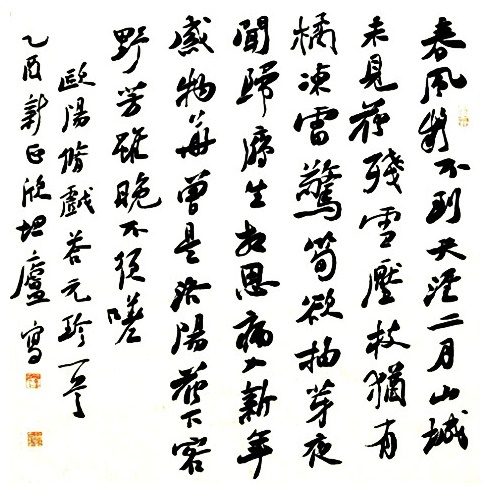 春風疑不到天涯二月山城
未見花殘雪壓枝猶有
橘凍雷驚筍欲抽芽夜
聞歸鴈生鄉思病入新年
感物華曾是洛陽花下客
野芳雖晚不須嗟
歐陽脩戲答元珍一首
乙酉新正欣坦廬寫